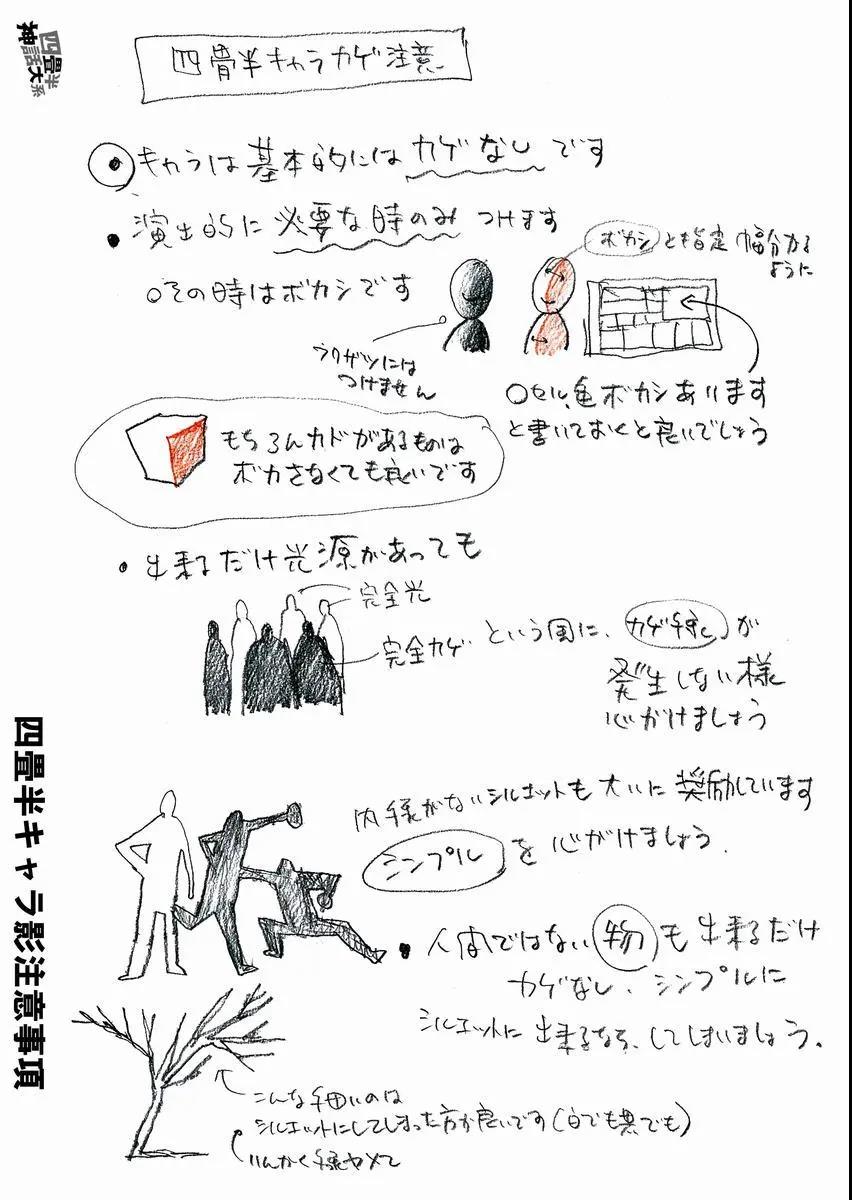 四畳半
神話大系
四畳半キャラカゲ注意
キャラは基本的にはカゲなしです
・演出的に必要な時のみつけます
○その時はボカシです
ボカシと指定 幅分かる
ように
ラクガツには
つけません
○セル、色ボカシあります
と書いておくと良いでしょう
もちろんカドがあるものは
ボカさなくても良いです
・出来るだけ光源があっても
完全光
完全カゲ という風に、カゲ線が
発生しない様
心がけましょう
内線がないシルエットも大いに奨励しています
シンプルを心がけましょう.
・人間ではない物も出来るだけ
カゲなし、シンプルに
シルエットに出来るなら、してしまいましょう。
こんな細いのは
シルエットにしてしまった方が良いです(白でも黒でも)
りんかく線ヤメて
四畳半キャラ影注意事項